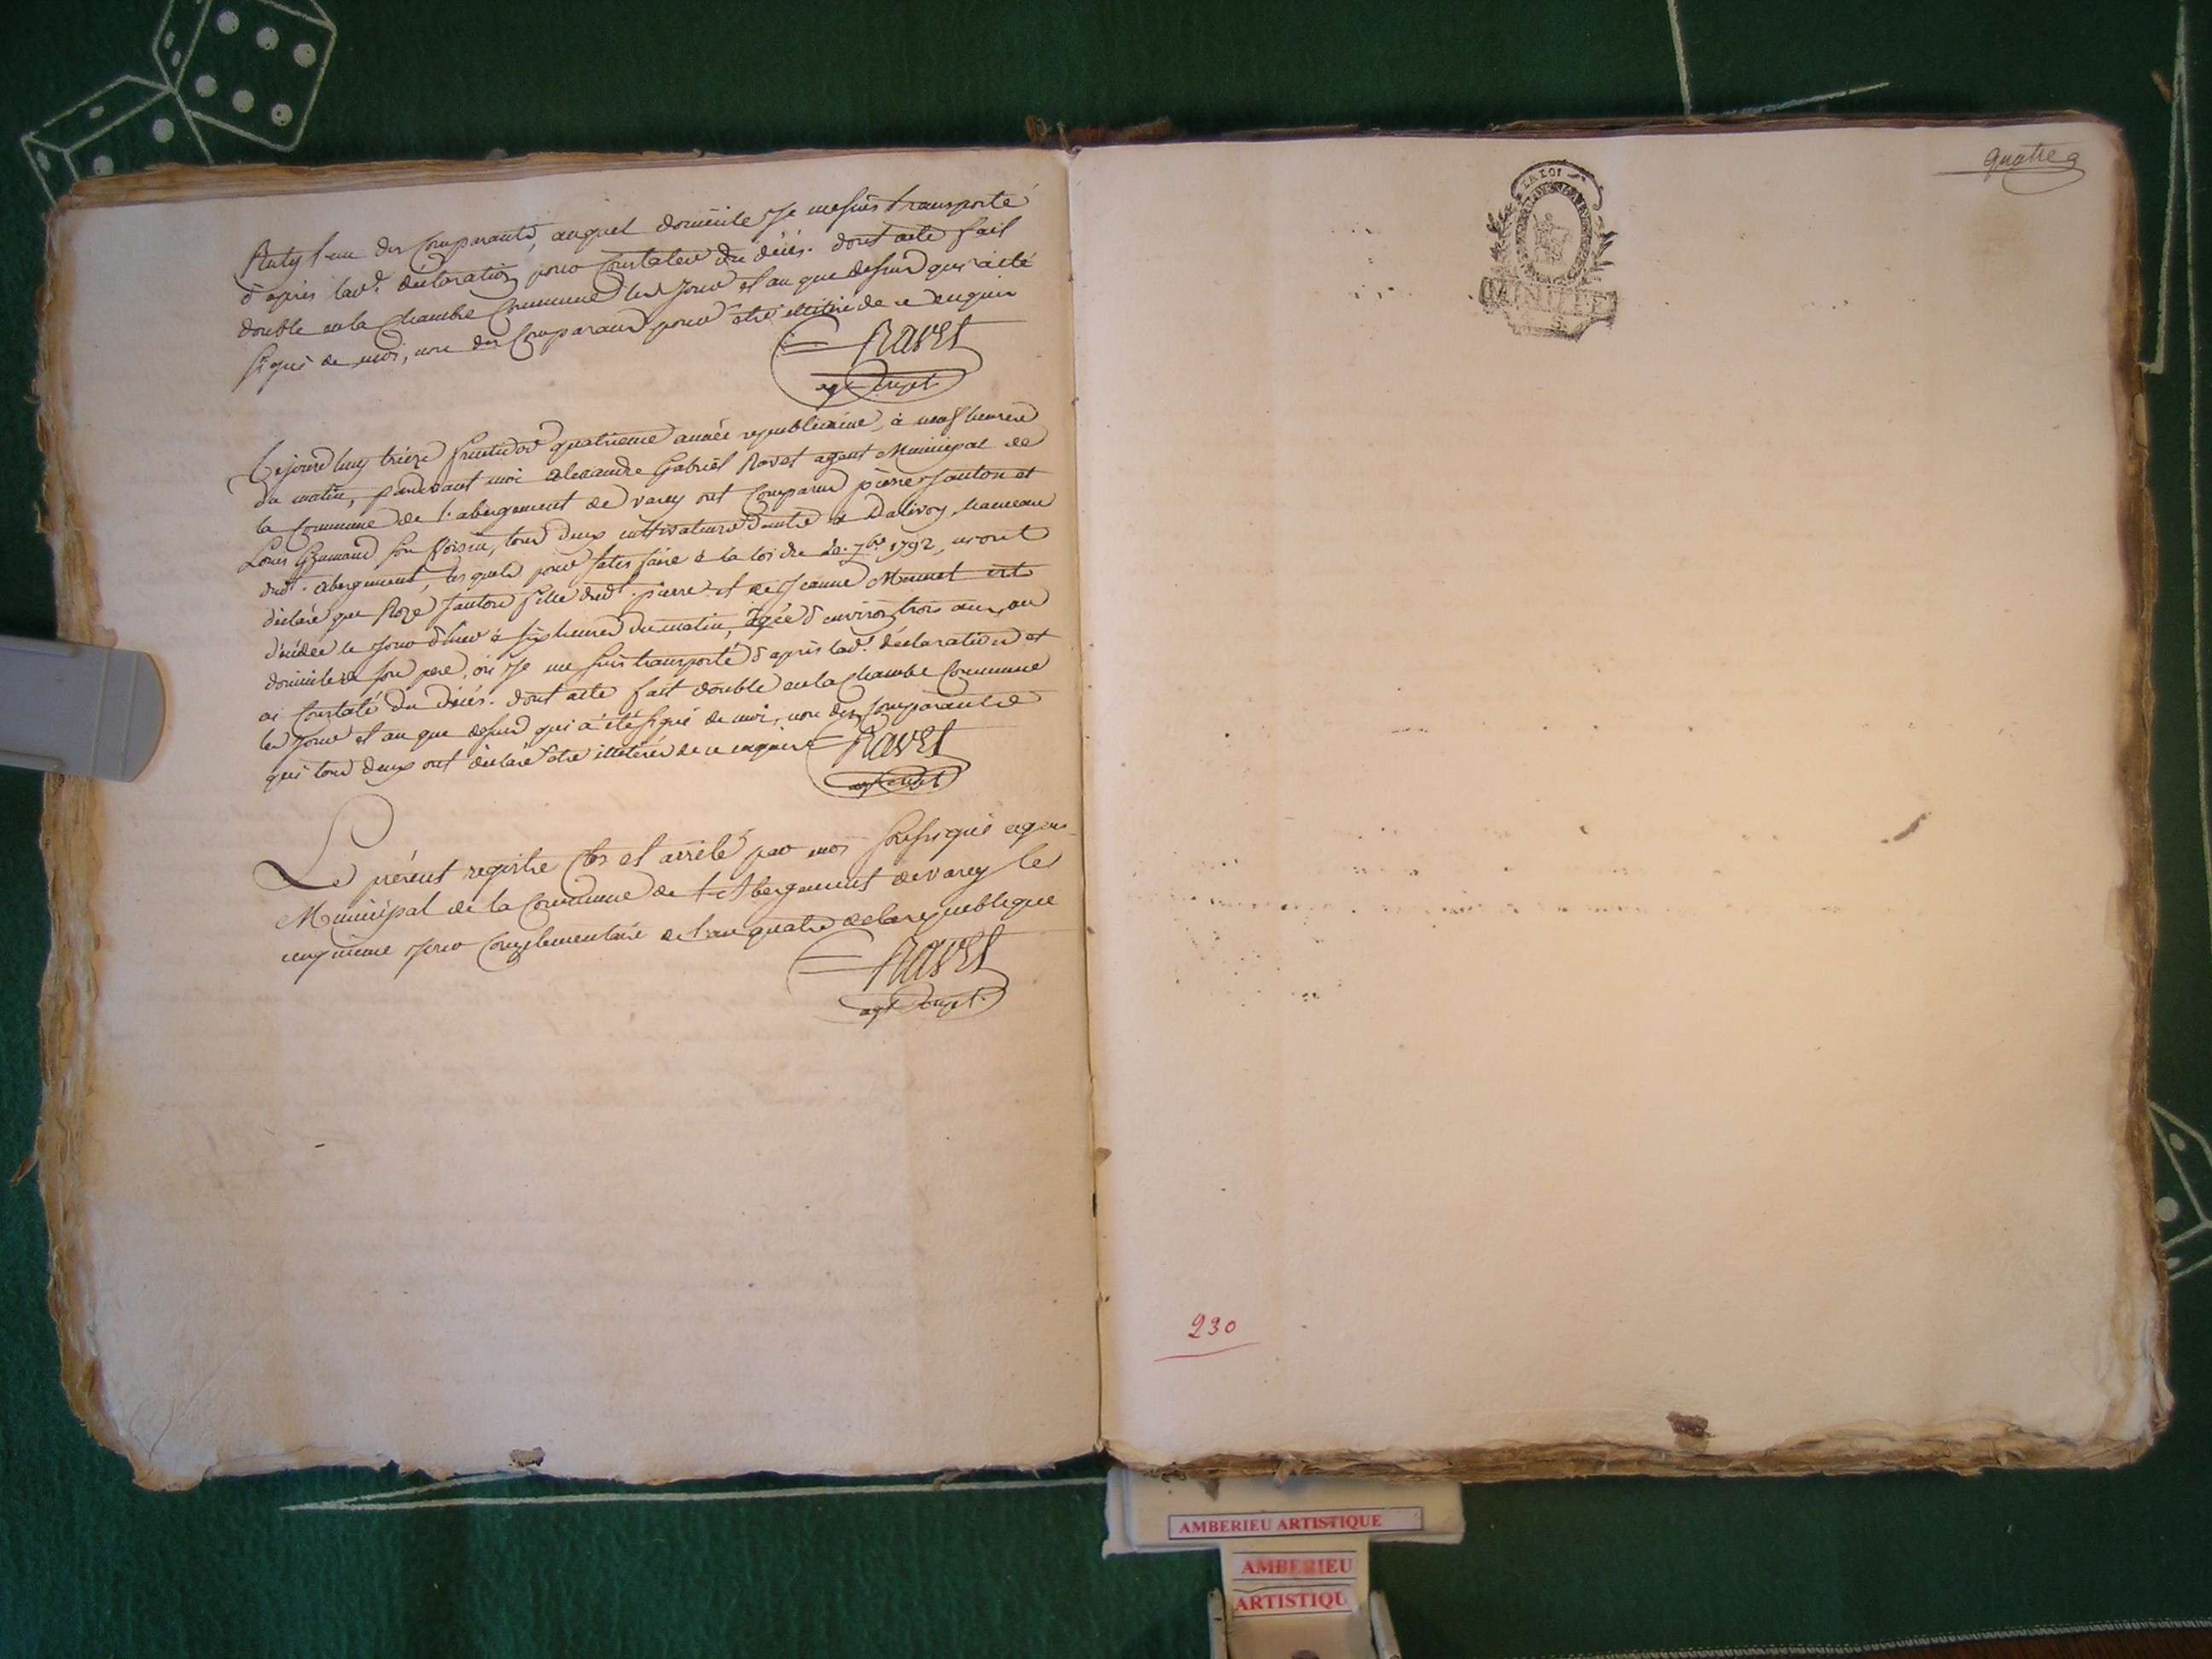 Ruty l'un des Comparants, auquel domicile Je me suis transporté
d'après lad.e déclaration pour Constater du décés. dont acte fait
double en la Chambre Commune les jour et an que dessus qui a été
signé de moi, non des Comparans pour etre illitéré de ce enquis
Ravet
agt Mpal
Cejourd'huy treize fructidor quatrieme année republicaine, à neuf heures
du matin, pardevant moi alexandre Gabriel Ravet agent Municipal de
la Commune de l'abergement de varey ont Comparus pierre Janton et
Louis son Voisin, tous deux cultivateurs à Dalivoy hameau
dud.t abergement, lesquels pour satisfaire à la loi du 20. 7bre 1792, m'ont
déclaré que Roze Janton fille dud.t pierre et de Jeanne est
décédée le Jour d'hier à six heures du matin, agée d'environ trois ans, au
domicile de son pere, où Je me suis transporté d'après lad.e déclaration et
ai Constaté du décés. dont acte fait double en la Chambe Commune
les Jour et an que dessus qui a été signé de moi, non des Comparants
qui tous deux ont déclaré etre illitérés de ce enquis
Ravet
agt Mpal
Le présent registre Clos et arrêté par moi soussigné agent
Municipal de la Commune de l'Abergement de varey le
cinquieme Jour Complementaire de l'an quatre de la republique
Ravet
agt Mpal
quatre
LA LOI
230
AMBERIEU ARTISTIQUE
AMBERIEU
ARTISTIQU